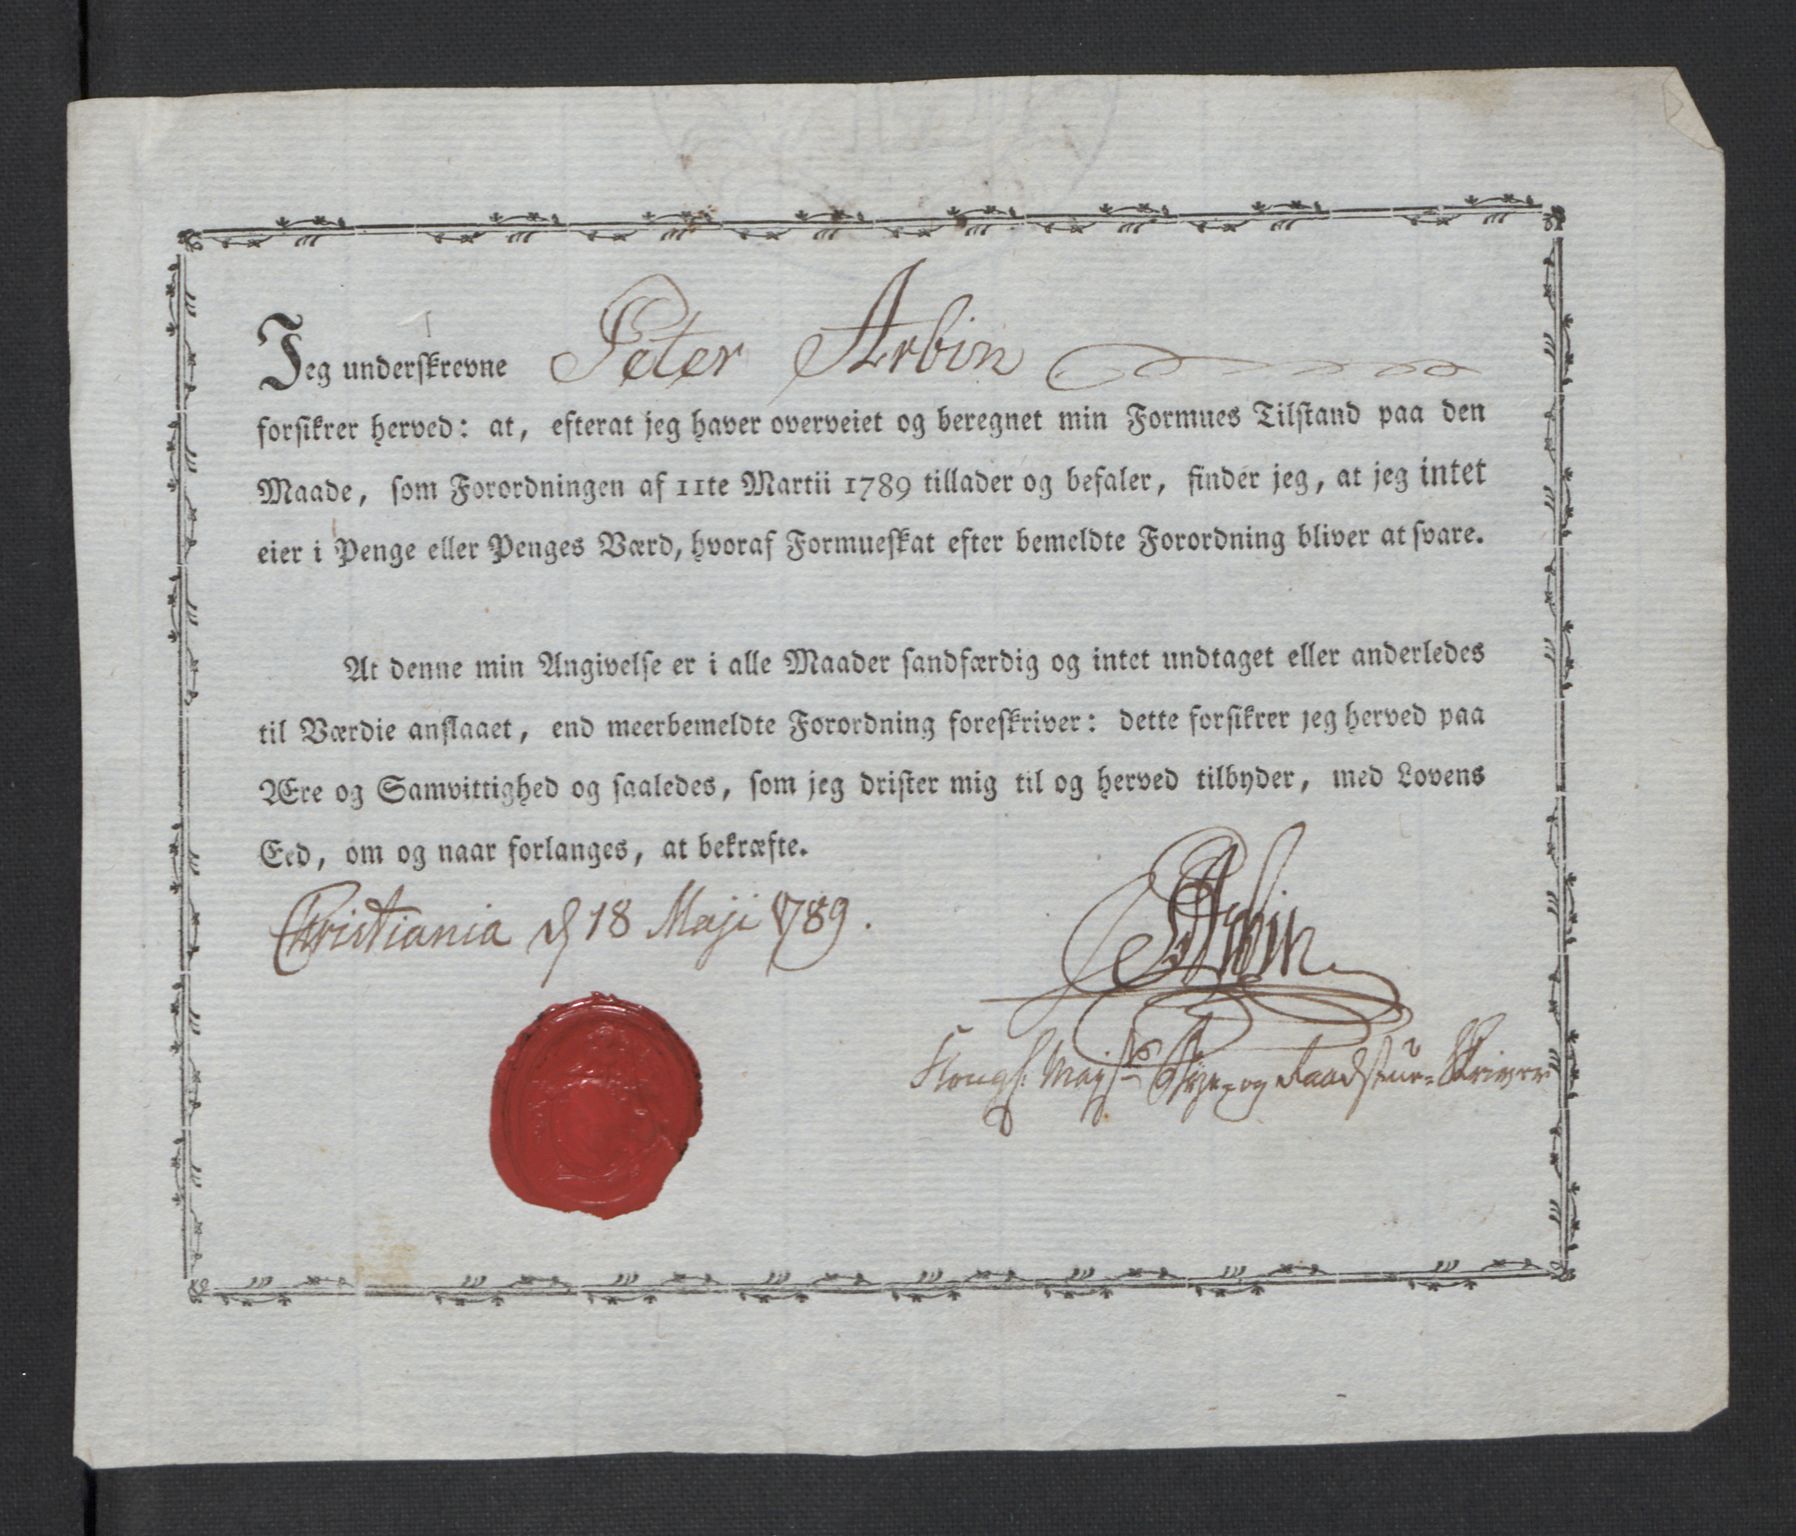 Jeg underskrevne Peter Arbin
forsikrer herved: at, efterat jeg haver overveiet og beregnet min Formues Tilstand paa den
Maade, som Forordningen af 11te Martii 1789 tillader og befaler, finder jeg, at jeg intet
eier i Penge eller Penges Værd, hvoraf Formueskat efter bemeldte Forordning bliver at svare.
At denne min Angivelse er i alle Maader sandfærdig og intet undtaget eller anderledes
til Værdie anslaaet, end meerbemeldte Forordning foreskriver: dette forsikrer jeg herved paa
Ære og Samvittighed og saaledes, som jeg drister mig til og herved tilbyder, med Lovens
Eed, om og naar forlanges, at bekræfte.
Christiania d 18 Maji 1789.
PArbin
Kongl: Mayst Bye- og Raadstue-Skriver